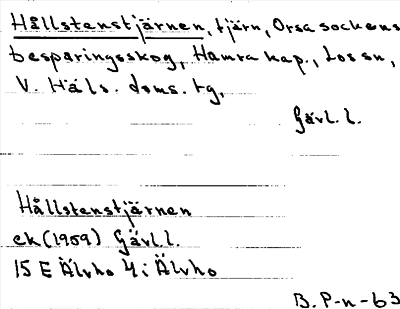 Hållstenstjärnen, tjärn, Orsa sockens
besparingsskog, Hamra kap., Los sn,
V. Häls. doms. tg,
Gävl. l.
Hållstenstjärnen
ek (1959) Gävl. l.
15 E Älvho 4 i Älvho
B. P-n -63